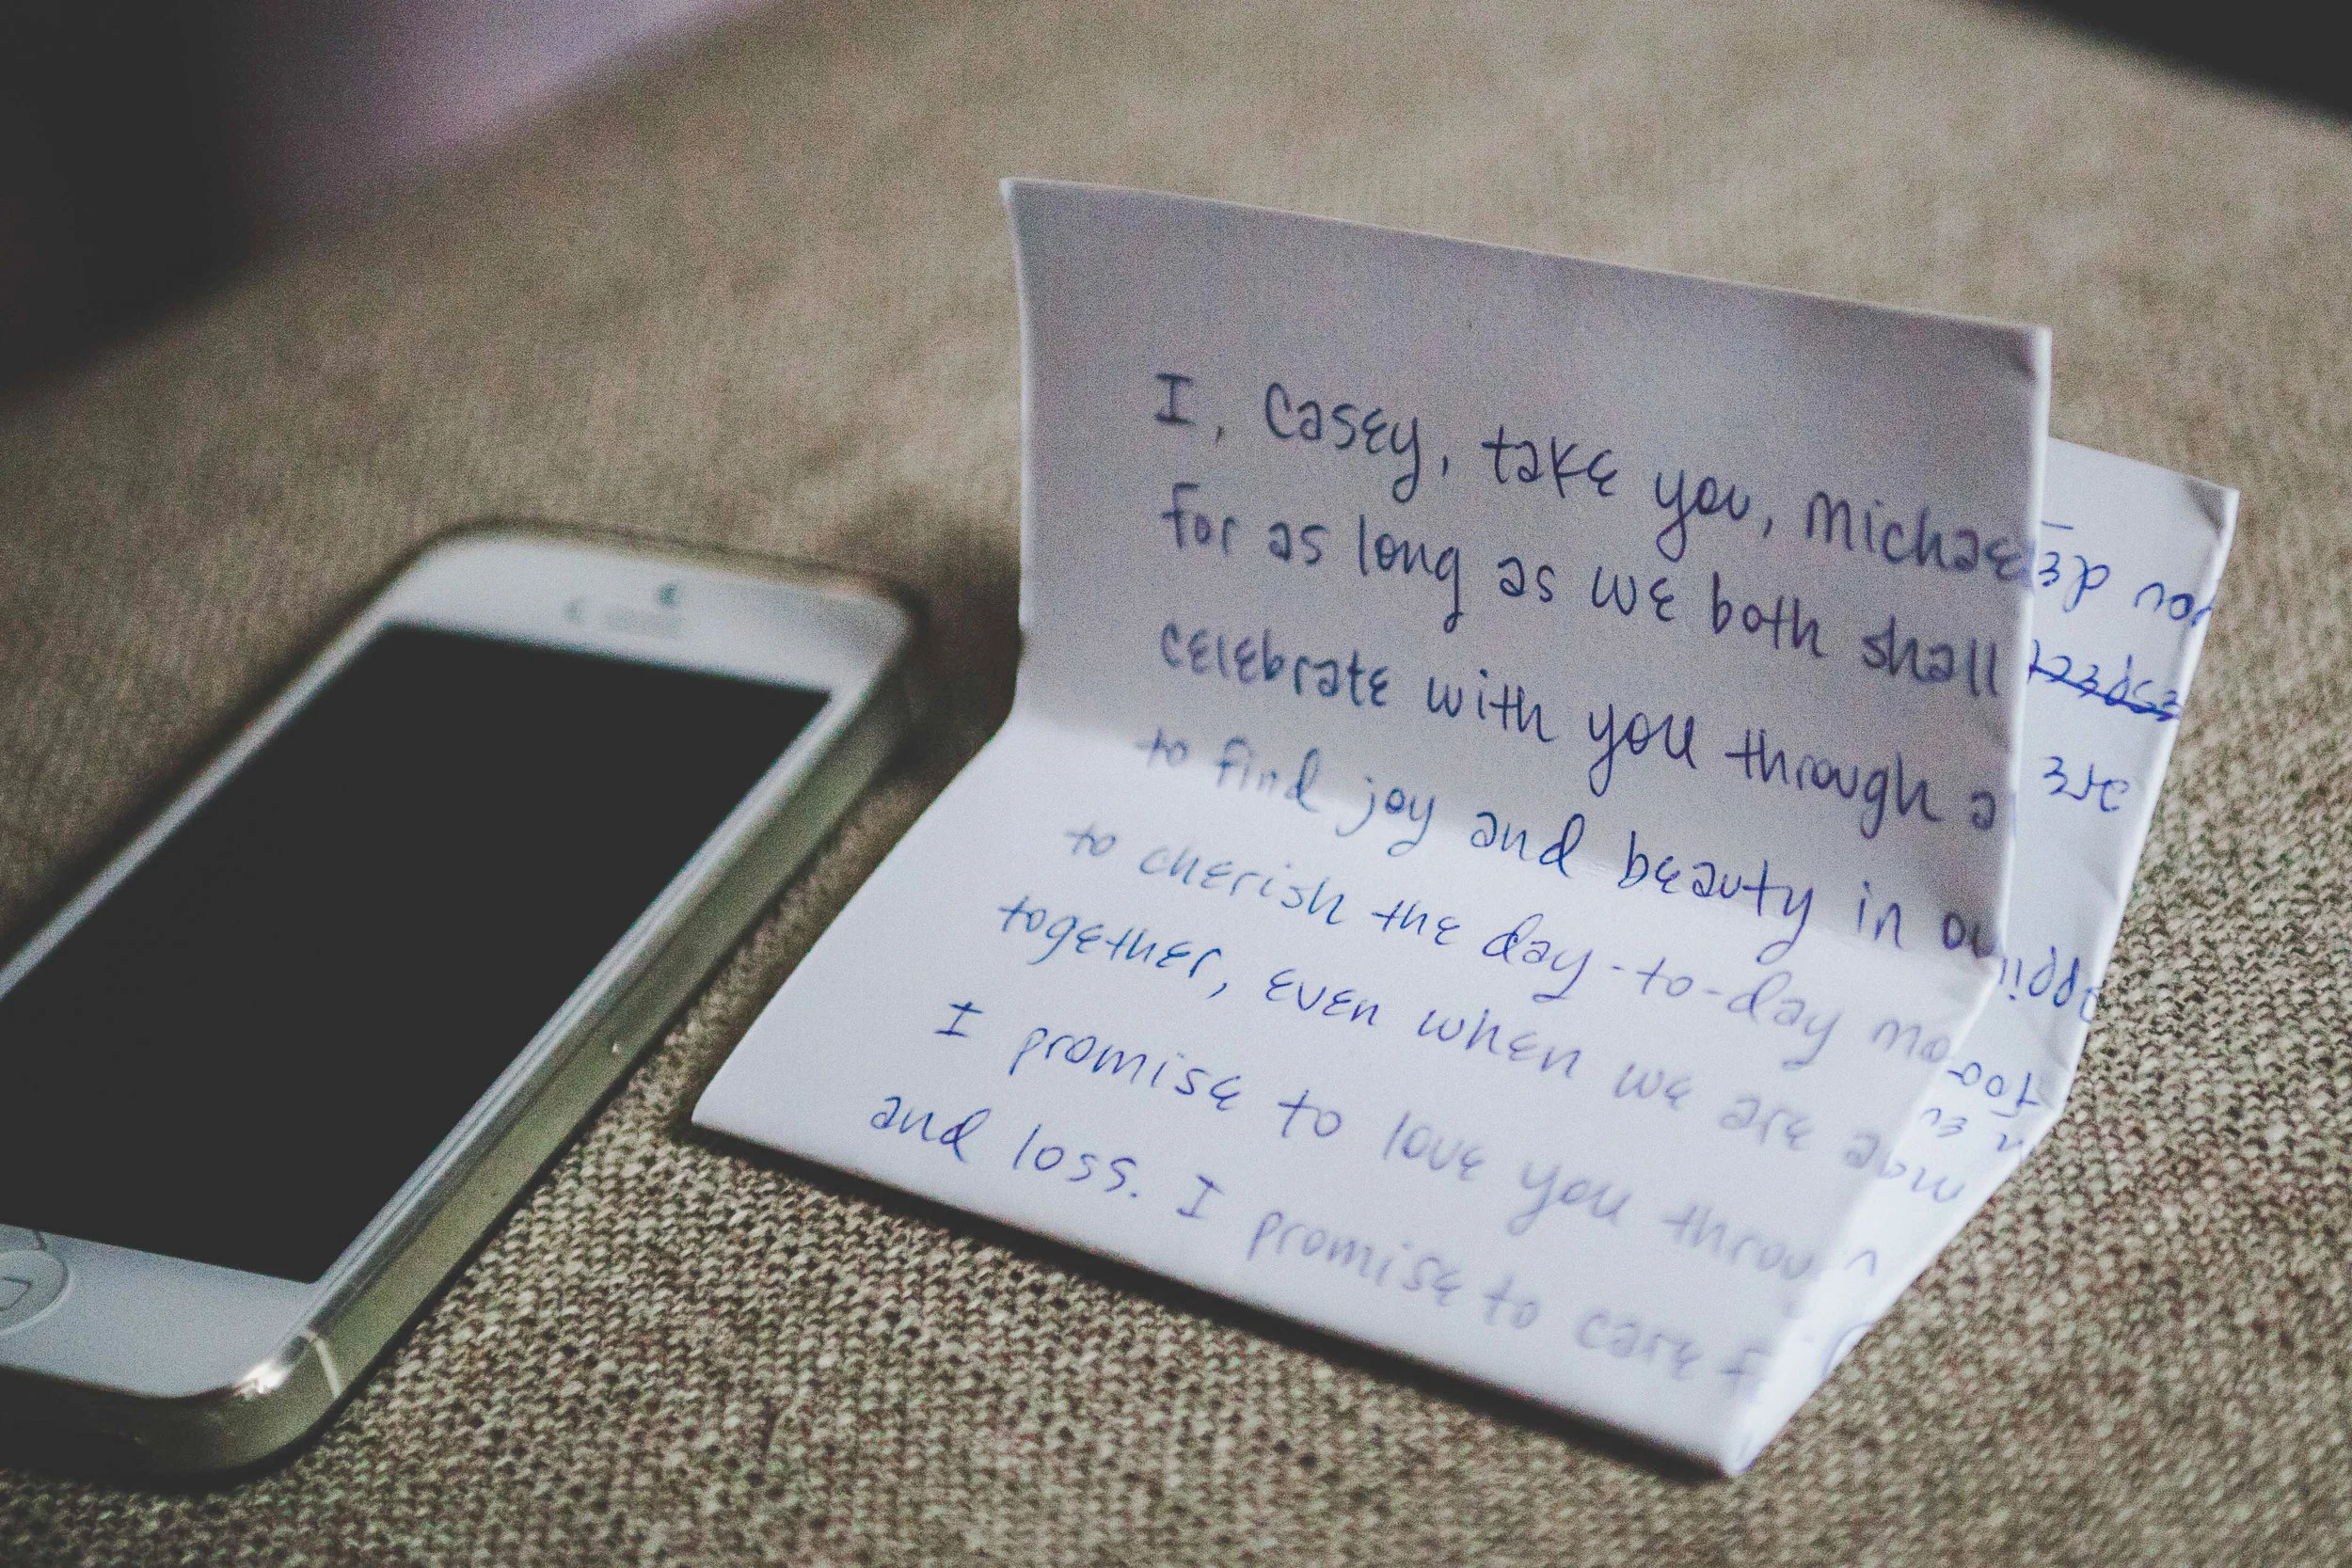 I, Casey, take you, Michael
for as long as we both shall
celebrate with you through a
to find joy and beauty in ou
to cherish the day-to-day mo
together, even when we are a
I promise to love you throu
and loss. I promise to care f
you de
espect
are